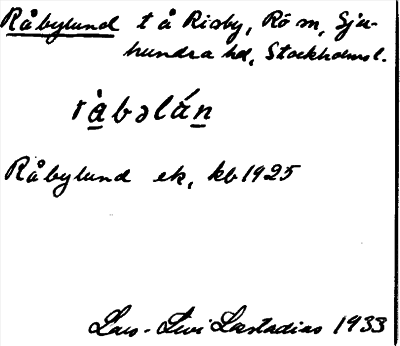 Råbylund t å Risby, Rö sn, Sju-
hundra hd, Stockholms l.
ràbəlán
Råbylund ek, kb 1925
Lars-Levi Læstadius 1933